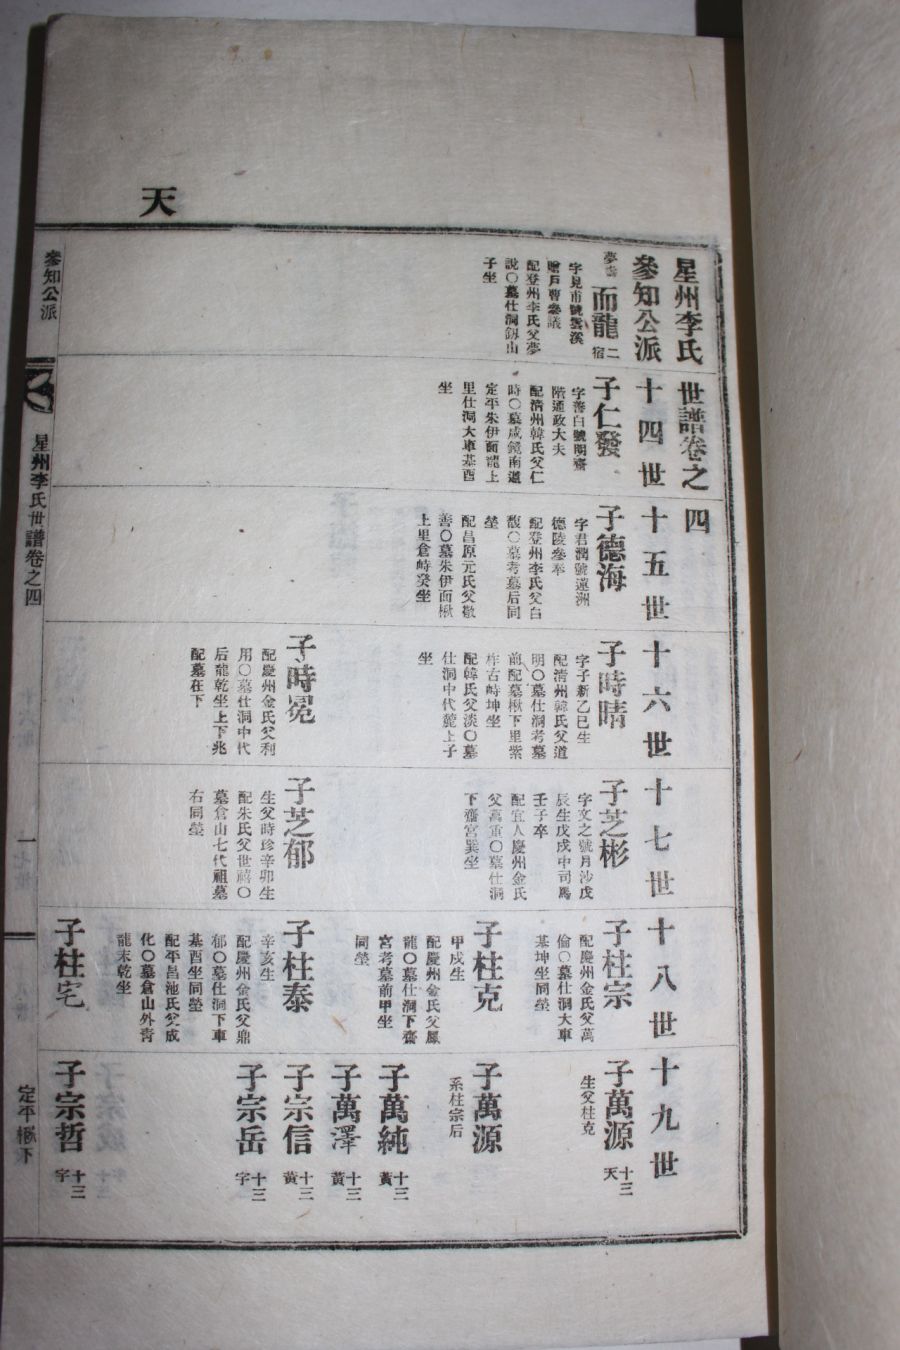 天
星州李氏世譜卷之四
參知公派
十四世
十五世
十六世
十七世
十八世
十九世
而龍
二宿
字見市號雲溪
贈戶曹參議
配登州李氏父夢
說〇墓仕洞釼山
子坐
子仁發
字善白號明齋
階通政大夫
配清州韓氏父仁
時〇墓咸鏡南道
定平朱伊面龍上
里仕洞大車基酉
坐
子德海
字君潤號蓮洲
德陵參奉
配登州李氏父白
馥〇墓考墓后同
塋
配昌原元氏父敬
善〇墓朱伊面楸
上里倉峙癸坐
子時晴
字子新乙巳生
配清州韓氏父道
明〇墓仕洞考墓
前配墓楸下里紫
柞古峙坤坐
配韓氏父淡〇墓
仕洞中代麓上子
坐
子時冕
配慶州金氏父利
用〇墓仕洞中代
后龍乾坐上下兆
配墓在下
子芝彬
字文之號月沙戊
辰生戊戌中司馬
壬子卒
配宜人慶州金氏
父萬重〇墓仕洞
下齋宮巽坐
子芝郁
生父時珍辛卯生
配朱氏父世禧〇
墓倉山七代祖墓
右同塋
子柱宗
配慶州金氏父萬
倫〇墓仕洞大車
基坤坐同塋
子柱克
甲戌生
配慶州金氏父鳳
龍〇墓仕洞下齋
宮考墓前甲坐
同塋
子柱泰
辛亥生
配慶州金氏父鼎
郁〇墓仕洞下車
基酉坐同塋
配平昌池氏父成
化〇墓倉山外青
龍末乾坐
子柱宅
子萬源
十三天
生父柱克
子萬源
系柱宗后
子萬純
十三黃
子萬澤
十三黃
子宗信
十三黃
子宗岳
十三字
子宗哲
十三字
參知公派
星州李氏世譜卷之四
一
定平楸下